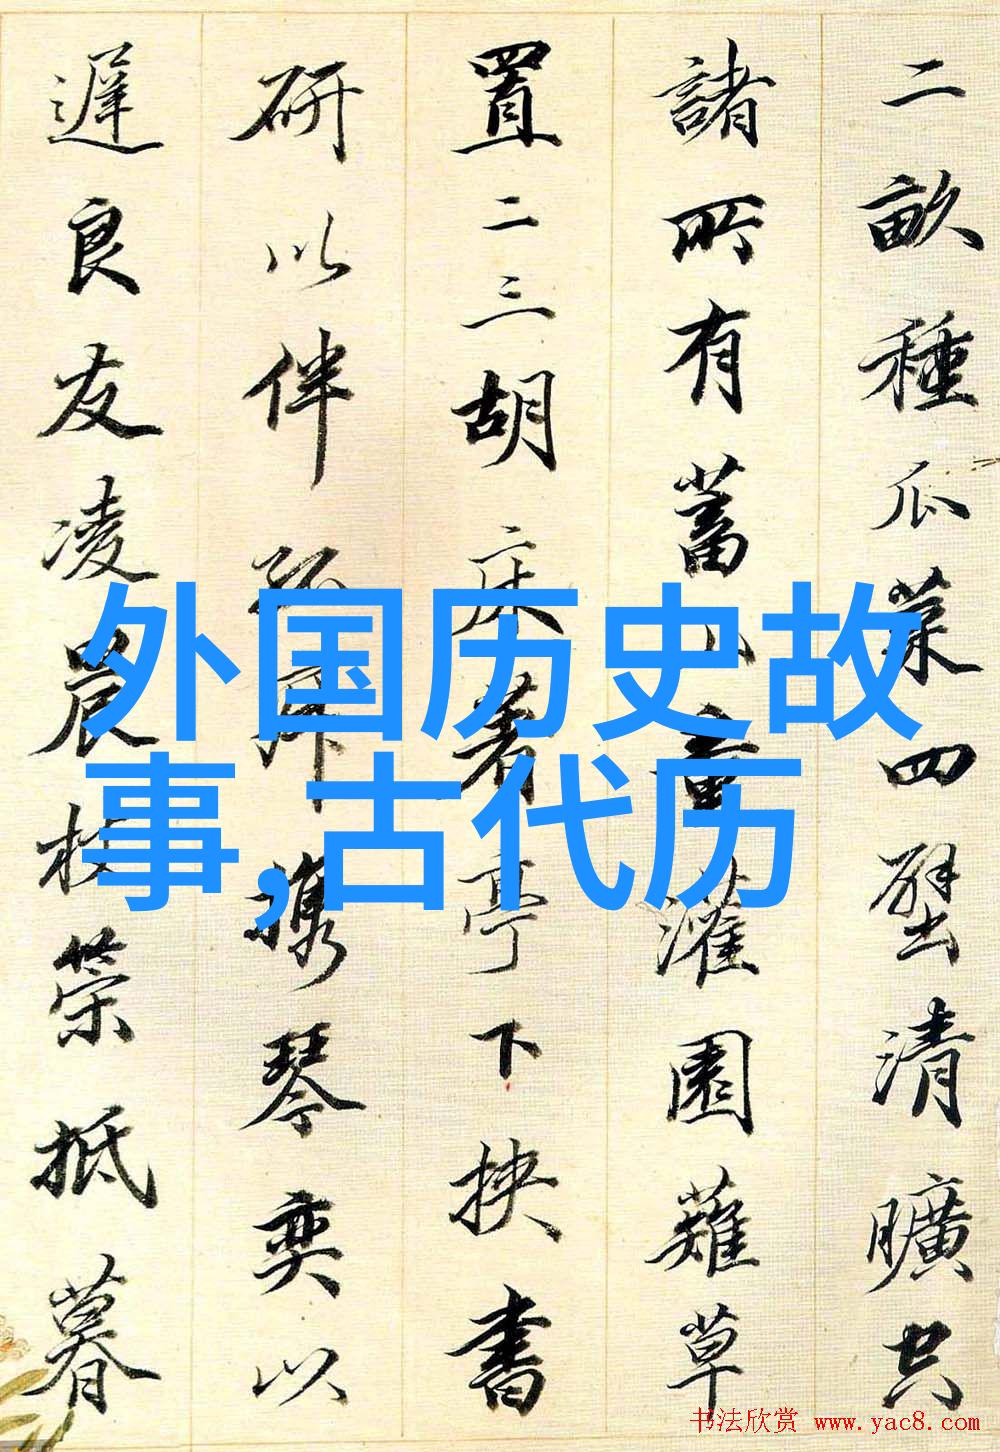 二畝種瓜菜四壁清曠空
諸所有蓄童灌園薙草
置二三胡床著亭下挾書
研以伴孤寂攜琴奕以
遲良友凌晨杖策抵暮
外国历史故
事,古代历
书法欣赏 www.yac8.com